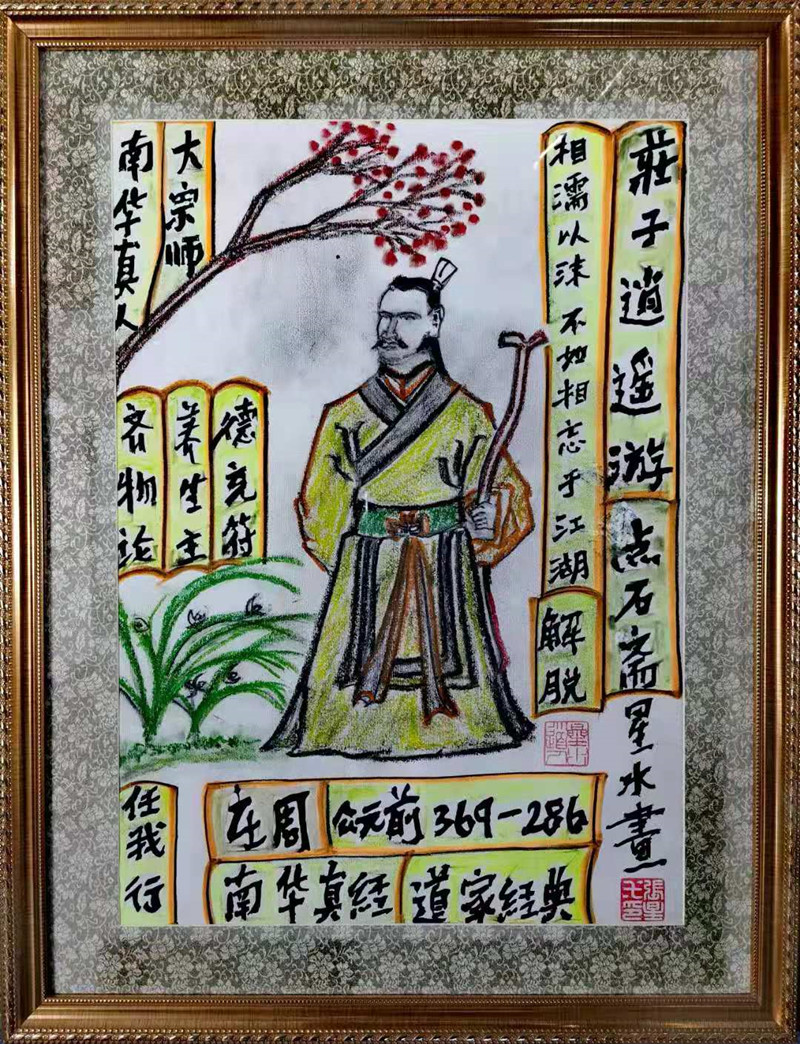 莊子逍遥游
点石斋星水畫
相濡以沫 不如相忘于江湖
解脱
大宗师
南华真人
德充符
养生主
齐物论
庄周 公元前369-286
南华真经 道家经典
任我行